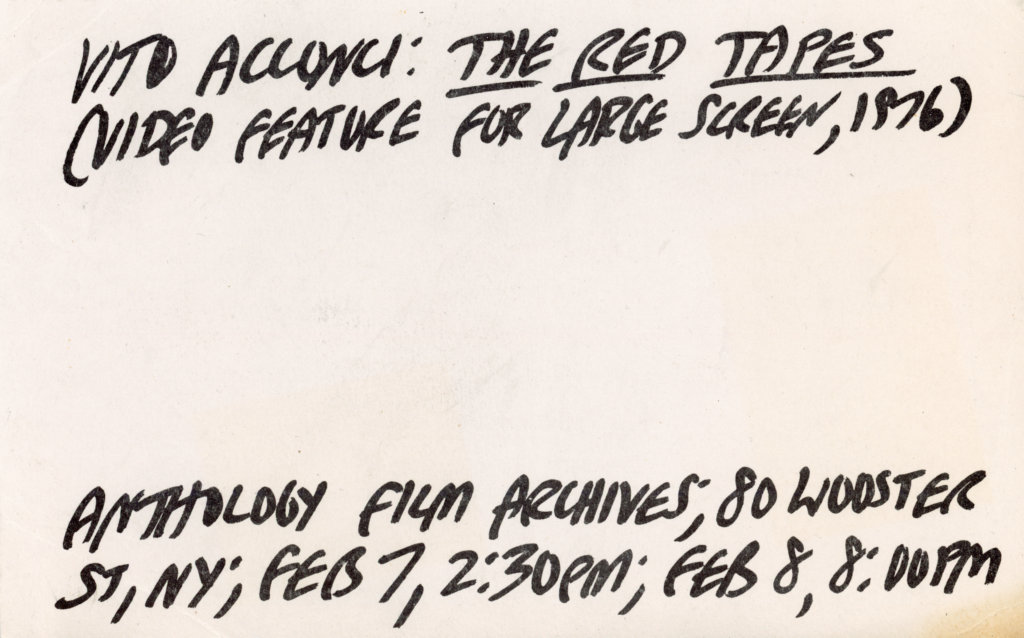 VITO ACCONCI: THE RED TAPES
(VIDEO FEATURE FOR LARGE SCREEN, 1976)
ANTHOLOGY FILM ARCHIVES; 80 WOOSTER
ST, NY; FEB 7, 2:30PM; FEB 8, 8:00PM